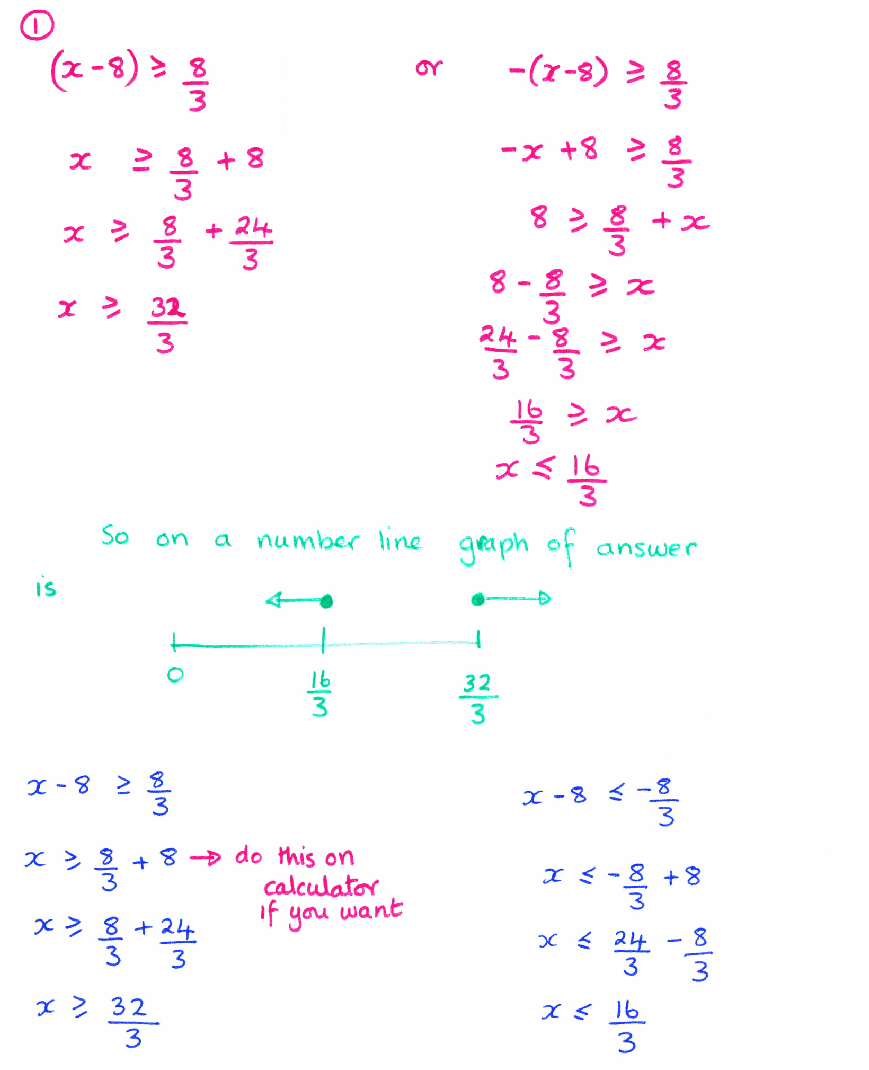 ①
(x-8) ≥ 8/3 or -(x-8) ≥ 8/3
x ≥ 8/3 + 8
-x + 8 ≥ 8/3
x ≥ 8/3 + 24/3
8 ≥ 8/3 + x
x ≥ 32/3
8 - 8/3 ≥ x
24/3 - 8/3 ≥ x
16/3 ≥ x
x ≤ 16/3
So on a number line graph of answer
is
0 16/3 32/3
x - 8 ≥ 8/3
x ≥ 8/3 + 8 → do this on
calculator
if you want
x ≥ 8/3 + 24/3
x ≥ 32/3
x - 8 ≤ -8/3
x ≤ -8/3 + 8
x ≤ 24/3 - 8/3
x ≤ 16/3